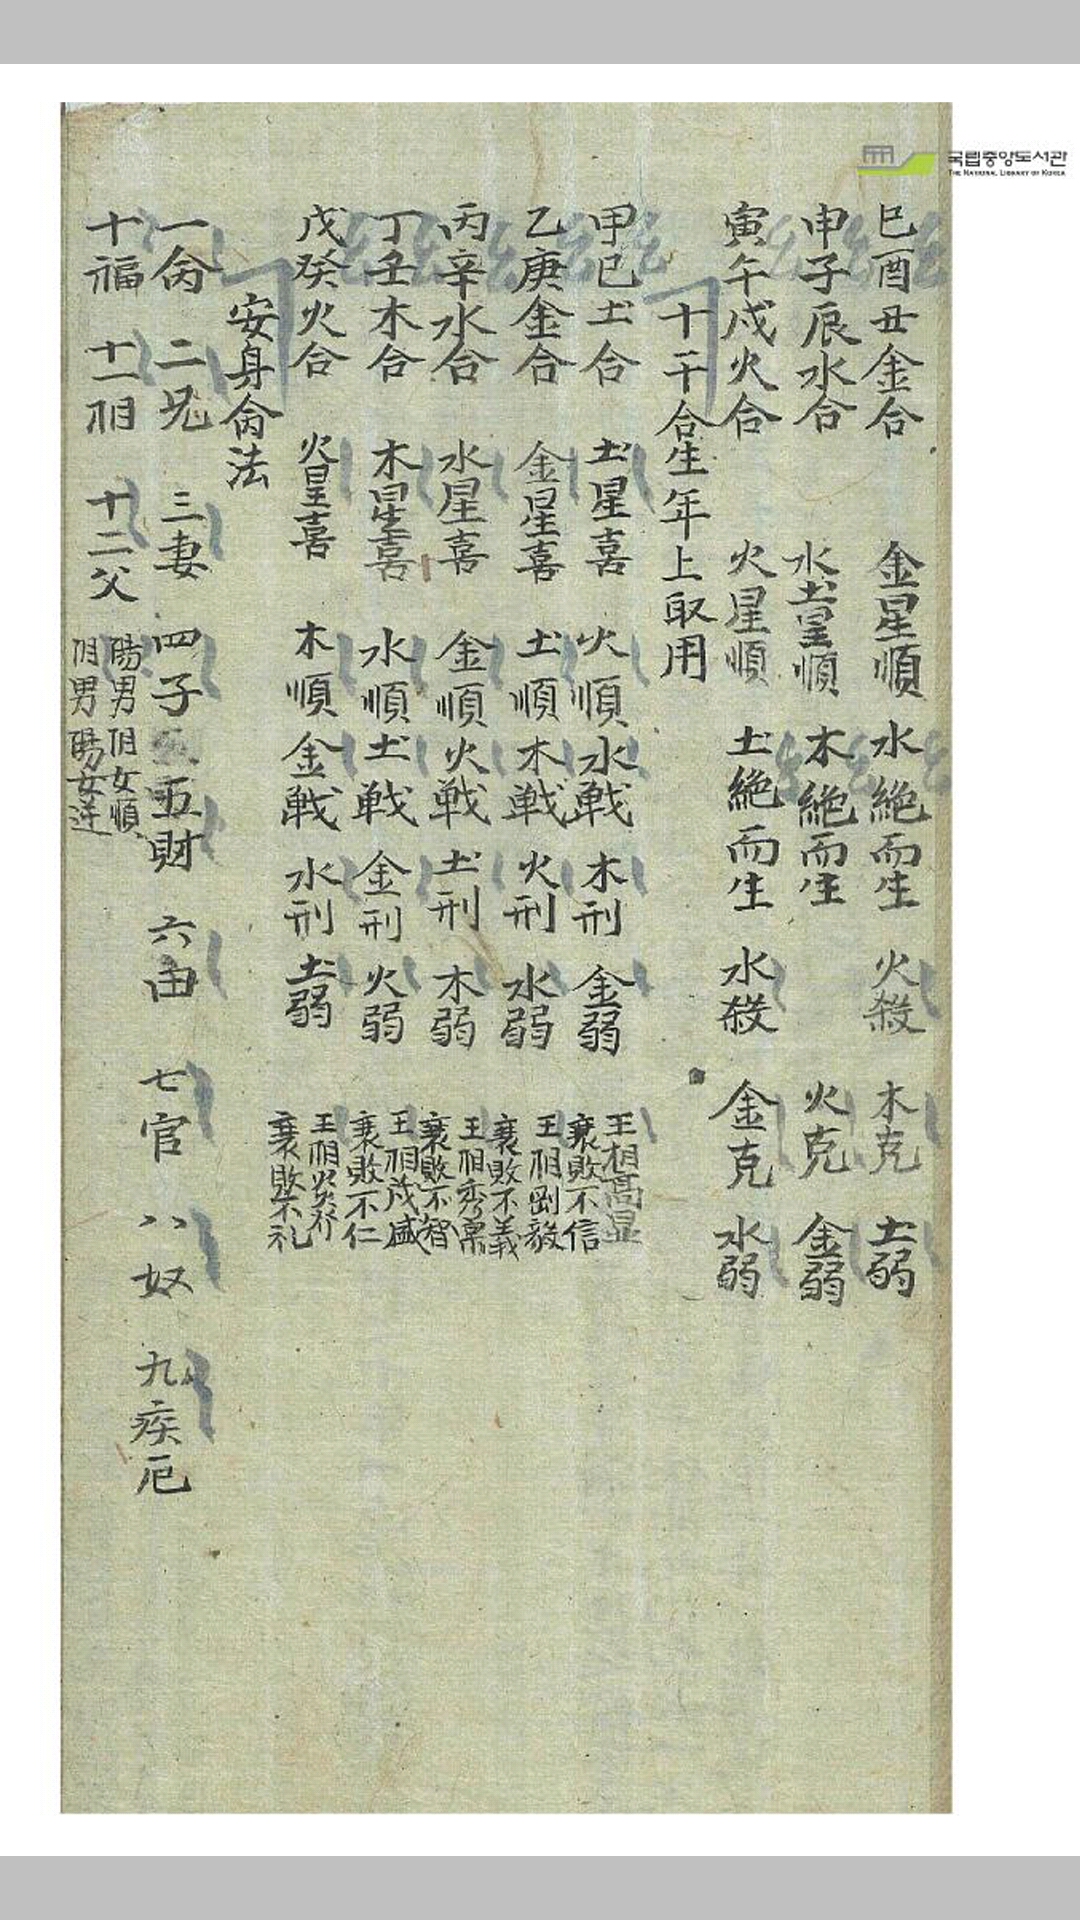 국립중앙도서관
THE NATIONAL LIBRARY OF KOREA
巳酉丑金合 金星順 水絶而生 火殺 木克 土弱
申子辰水合 水土星順 木絶而生 火克 金弱
寅午戌火合 火星順 土絶而生 水殺 金克 水弱
十干合生年上取用
甲巳土合 土星喜 火順 水戦 木刑 金弱 王相高显 衰敗不信
乙庚金合 金星喜 土順 木戦 火刑 水弱 王相剛毅 衰敗不義
丙辛水合 水星喜 金順 火戦 土刑 木弱 王相秀 衰敗不智
丁壬木合 木星喜 水順 土戦 金刑 火弱 王相茂盛 衰敗不仁
戊癸火合 火星喜 木順 金戦 水刑 土弱 王相炎 衰敗不礼
安身命法
一命 二兄 三妻 四子 五財 六田 七官 八奴 九疾厄
十福 十一相 十二父 陽男阴女順 阴男陽女逆